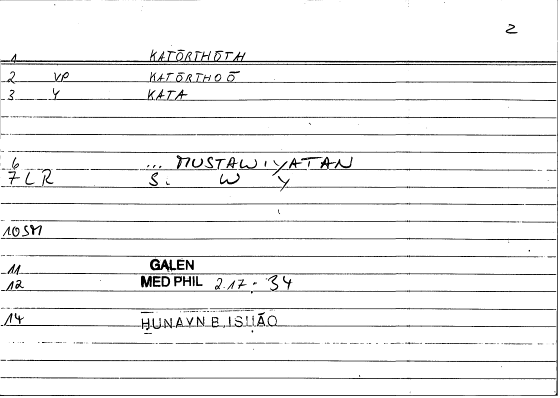 2
1 KATŌRTHŌTH
2 VP KATŌRTHOŌ
3 Y KATA
6 ... MUSTAWIYATAN
7 LR S. W Y
10 SM
11 GALEN
12 MED PHIL 2.17 : 34
14 HUNAYN B. ISHĀQ